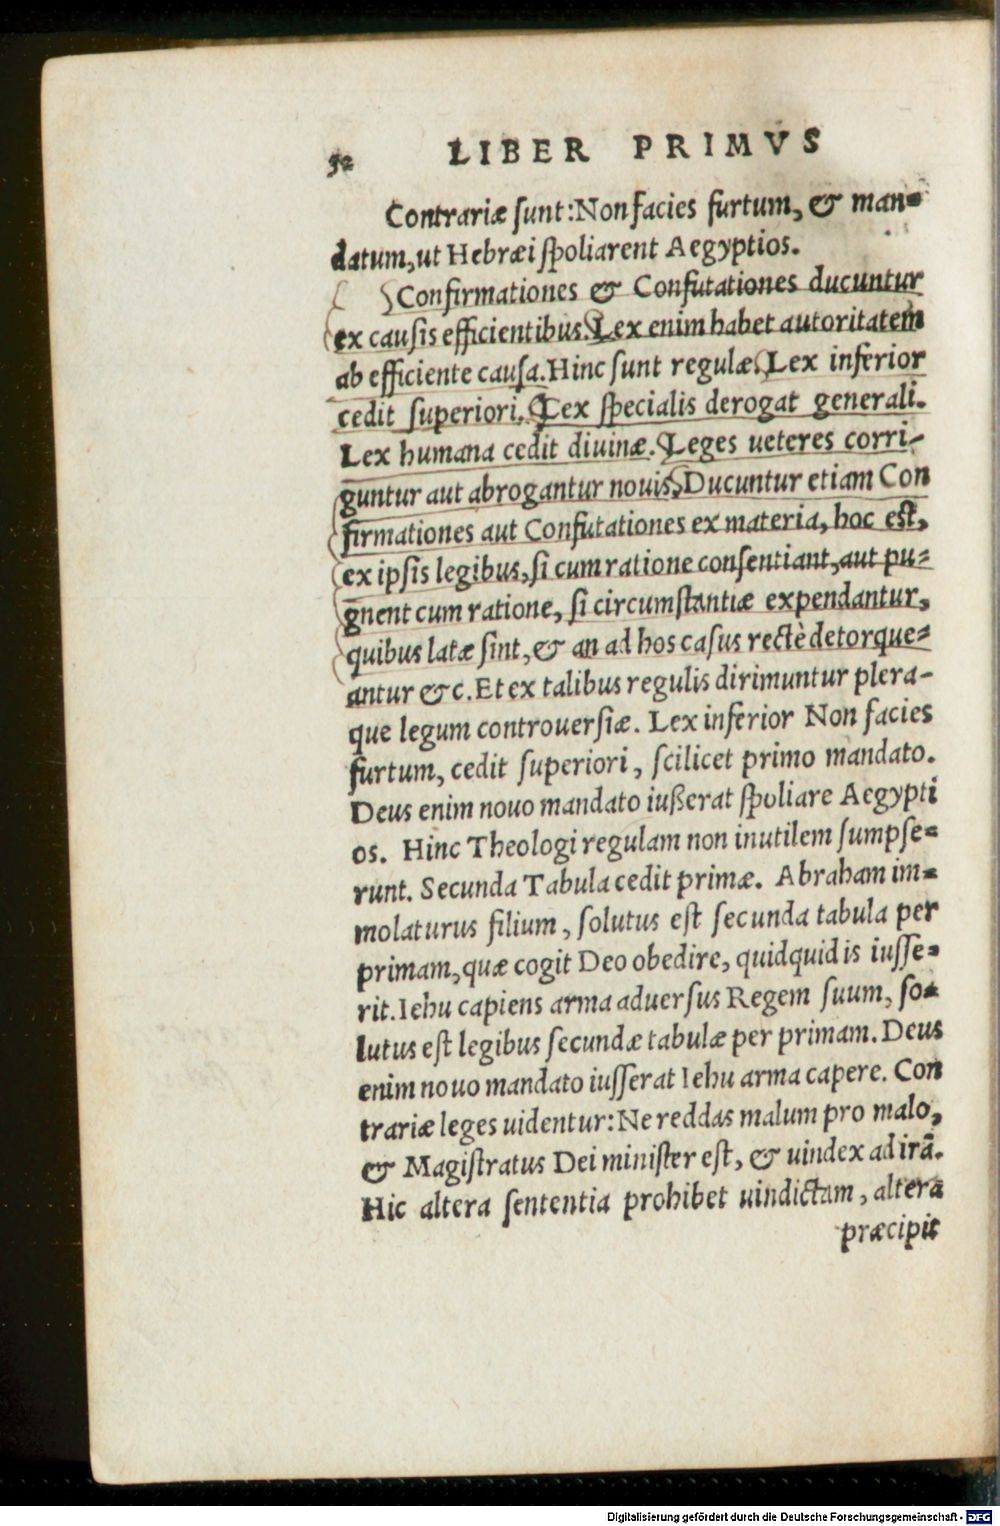 52 LIBER PRIMVS
Contrariæ sunt: Non facies furtum, & man=
datum, ut Hebræi spoliarent Aegyptios.
Confirmationes & Confutationes ducuntur
ex causis efficientibus. Lex enim habet autoritatem
ab efficiente causa. Hinc sunt regulæ. Lex inferior
cedit superiori. Lex specialis derogat generali.
Lex humana cedit diuinæ. Leges ueteres corri-
guntur aut abrogantur nouis. Ducuntur etiam Con
firmationes aut Confutationes ex materia, hoc est,
ex ipsis legibus, si cum ratione consentiant, aut pu=
gnent cum ratione, si circumstantiæ expendantur,
quibus latæ sint, & an ad hos casus rectè detorque=
antur &c. Et ex talibus regulis dirimuntur plera-
que legum controuersiæ. Lex inferior Non facies
furtum, cedit superiori, scilicet primo mandato.
Deus enim nouo mandato iußerat spoliare Aegypti
os. Hinc Theologi regulam non inutilem sumpse=
runt. Secunda Tabula cedit primæ. Abraham im=
molaturus filium, solutus est secunda tabula per
primam, quæ cogit Deo obedire, quidquid is iusse=
rit. Iehu capiens arma aduersus Regem suum, so=
lutus est legibus secundæ tabulæ per primam. Deus
enim nouo mandato iusserat Iehu arma capere. Con
trariæ leges uidentur: Ne reddas malum pro malo,
& Magistratus Dei minister est, & uindex ad irã.
Hic altera sententia prohibet uindictam, altera
præcipit
Digitalisierung gefördert durch die Deutsche Forschungsgemeinschaft - DFG